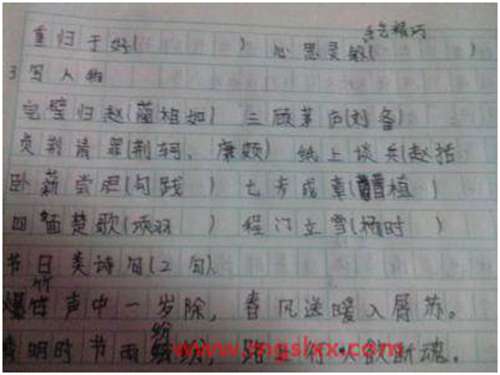 精巧
重归于好( ) 心思灵敏(
3写人物
完璧归赵(蔺相如) 三顾茅庐(刘备)
负荆请罪(荆轲、廉颇) 纸上谈兵(赵括
卧薪尝胆(勾践) 七步成章(曹植)
四面楚歌(项羽) 程门立雪(杨时)
节日美诗句(2句)
爆竹声中一岁除,春风送暖入屠苏。
清明时节雨纷纷,路上行人欲断魂。